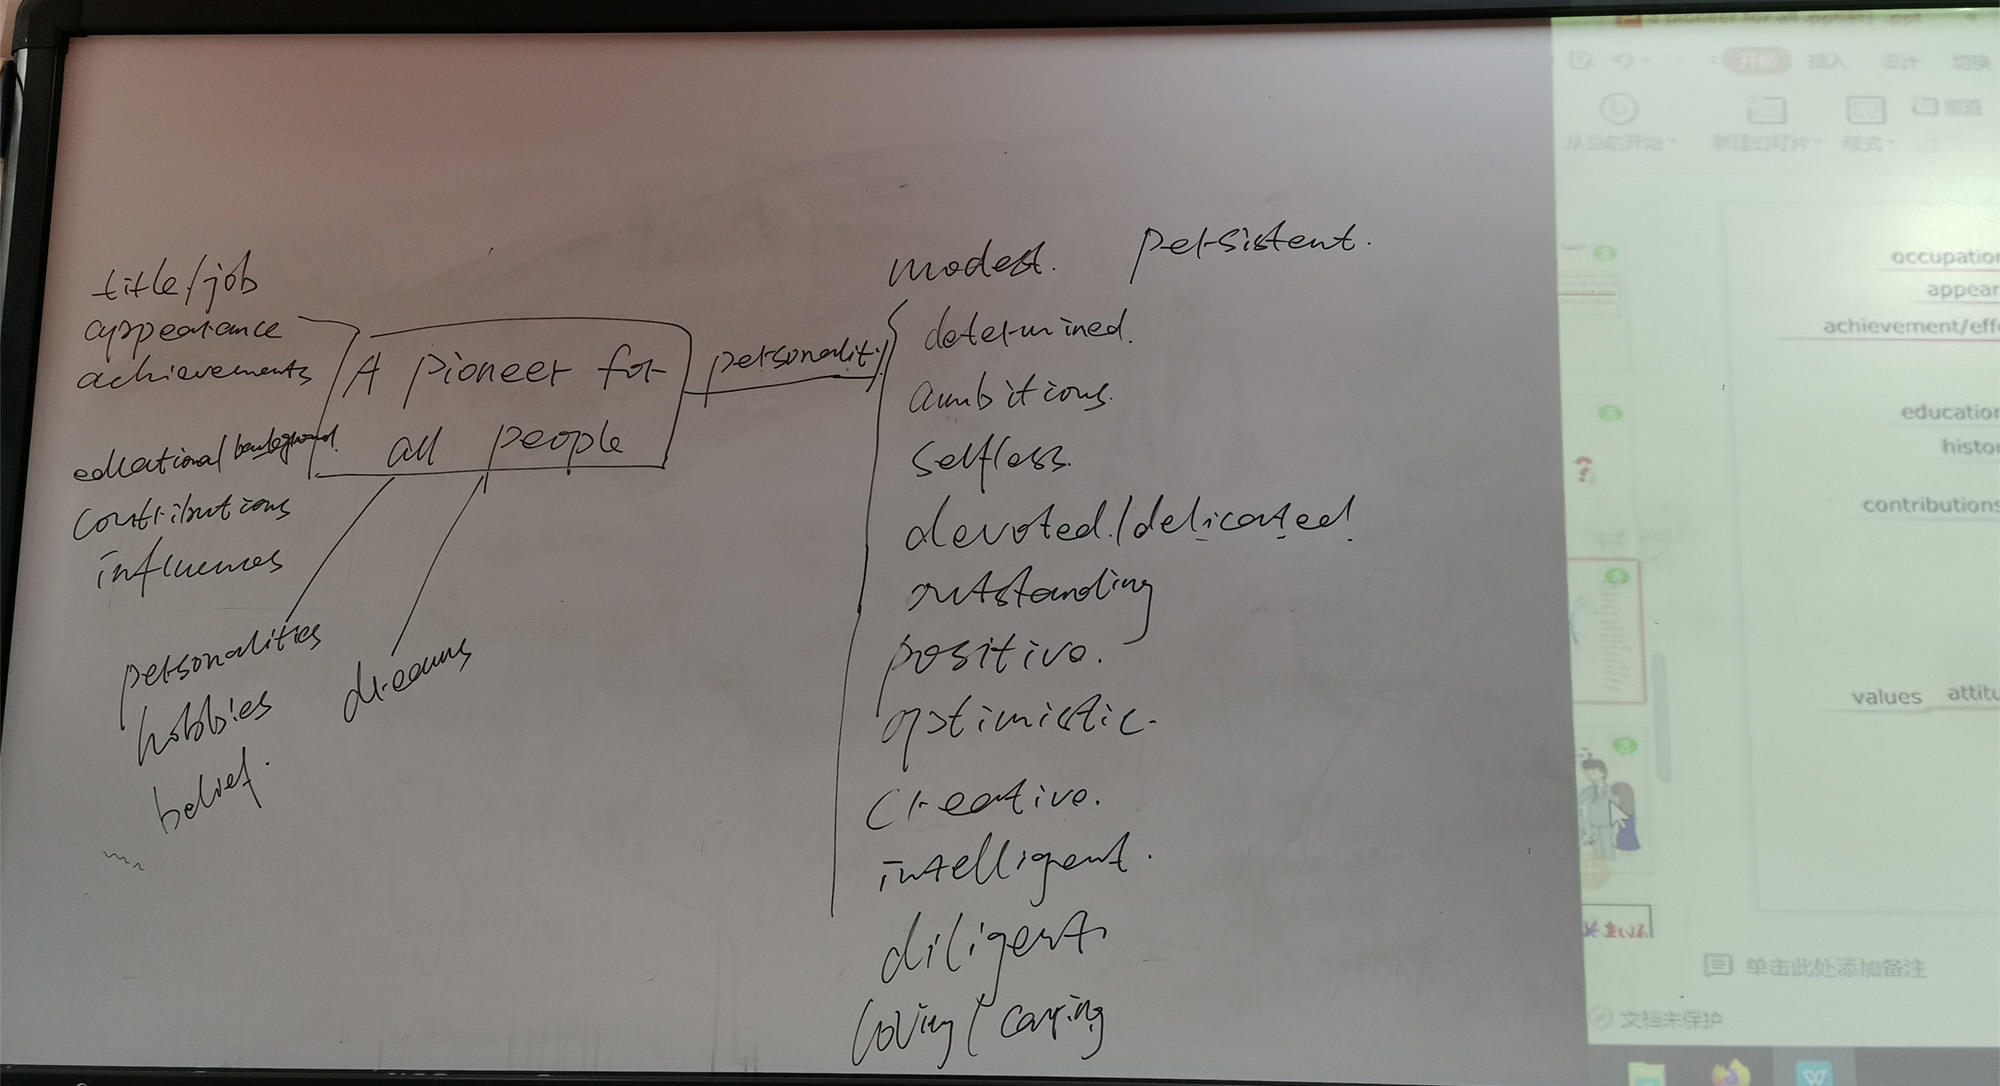 title/job
appearance
achievements
educational background.
contributions
influences
A pioneer for
all people
personalities
hobbies
belief.
dreams
personality
modest. persistent.
determined.
ambitions.
selfless.
devoted./delicated
outstanding
positive.
optimistic.
creative.
intelligent.
diligent
loving/caring
a pioneer for all .ppt
开始 插入 设计 切换
重置
从当前开始 新建幻灯片 版式
occupation
appear
achievement/effe
education
histor
contributions
values attitu
单击此处添加备注
文档未保护